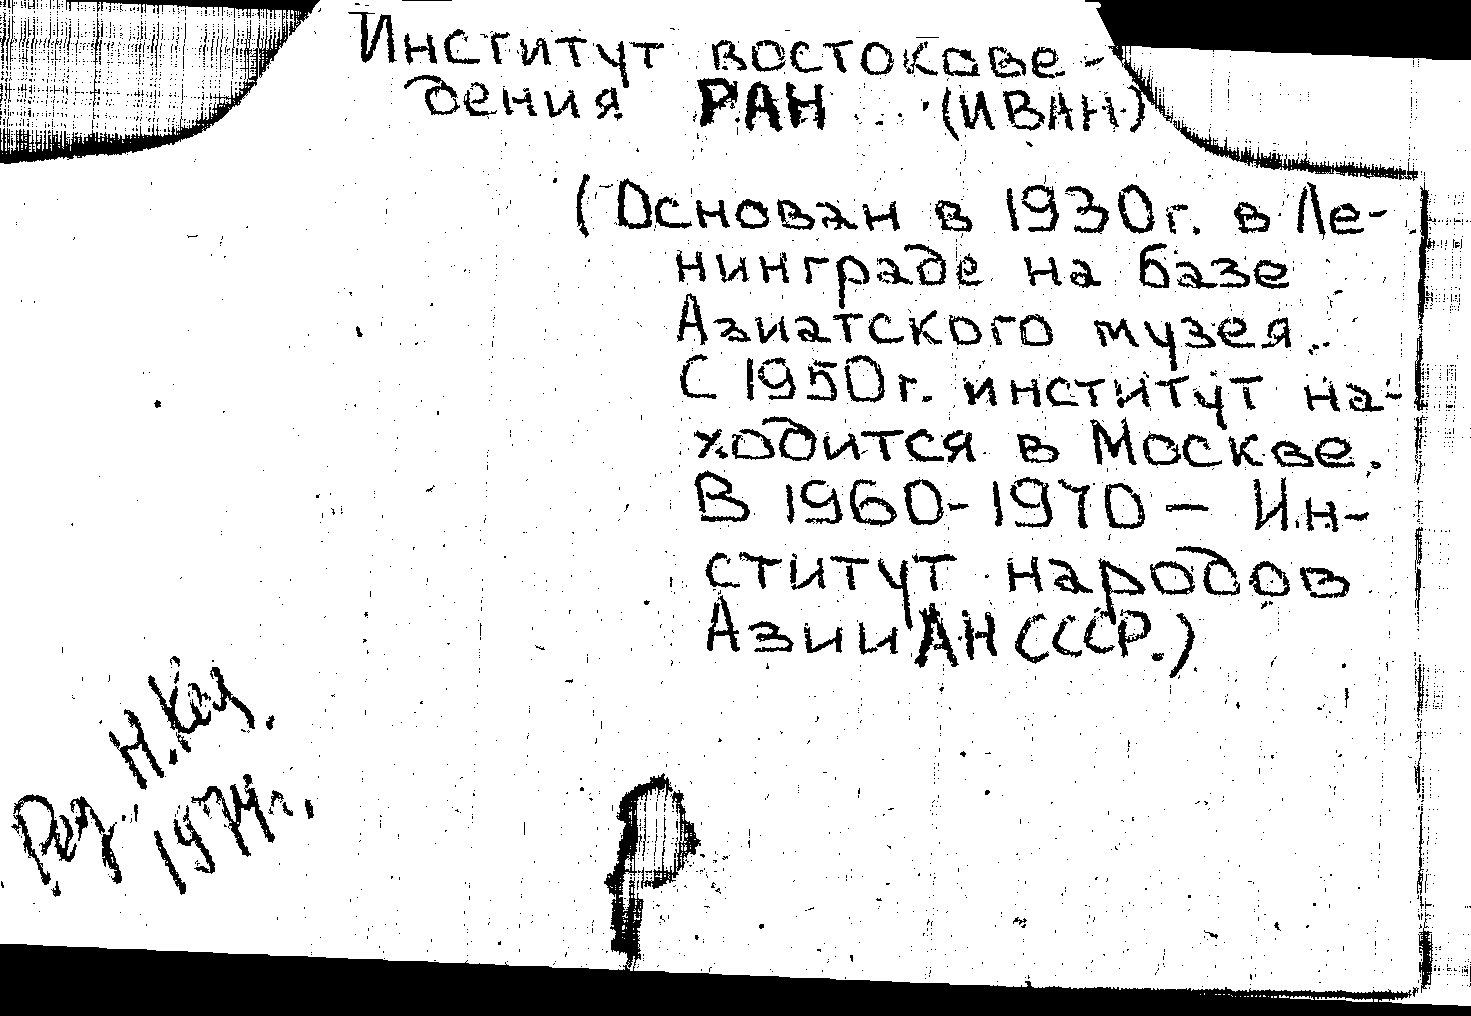 Институт востокове-
дения РАН (ИВАН)
(Основан в 1930г. в Ле-
нинграде на базе
Азиатского музея.
С 1950г. институт на-
ходится в Москве.
В 1960-1970 — Ин-
ститут народов
Азии АН СССР.)
Ред. Н.Кац.
1974г.